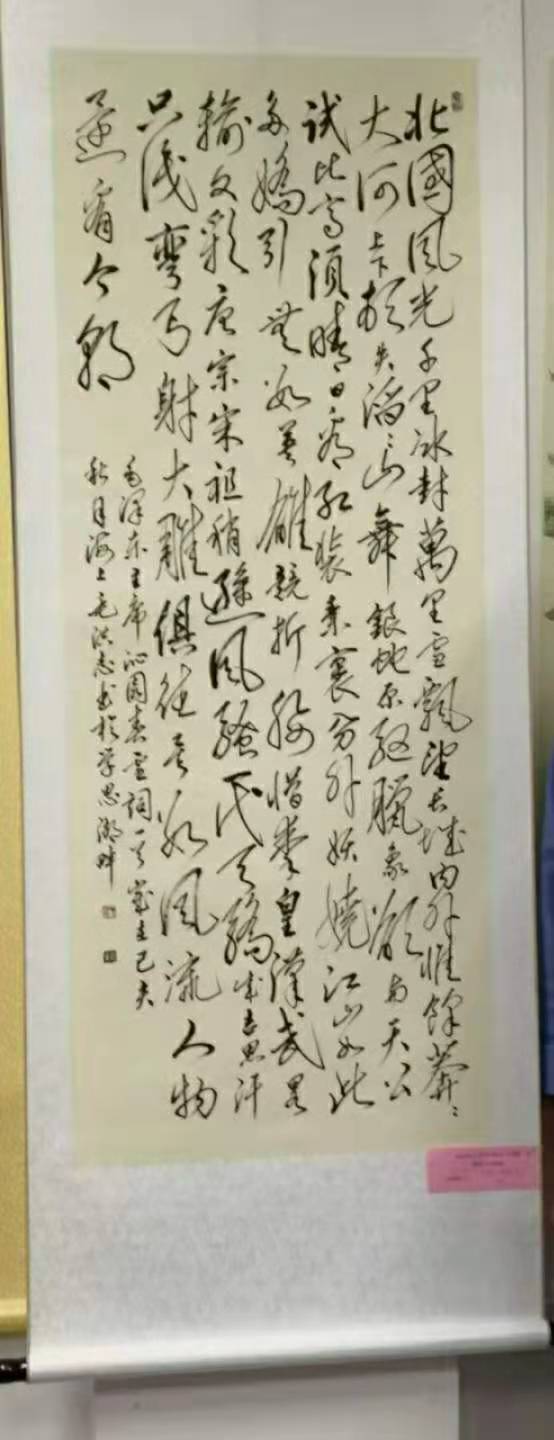 北國風光千里冰封萬里雪飄望长城内外惟餘莽々
大河上下頓失滔々山舞銀蛇原驰臘象欲与天公
試比高須晴日看红裝素裹分外妖嬈江山如此
多嬌引無数英雄競折腰惜秦皇漢武畧
輸文彩唐宗宋祖稍遜風騷一代天驕成吉思汗
只識彎弓射大雕俱往矣数風流人物
還看今朝
毛澤东主席沁園春雪詞一首歲在己亥
秋月海上毛洪志书於学思湖畔